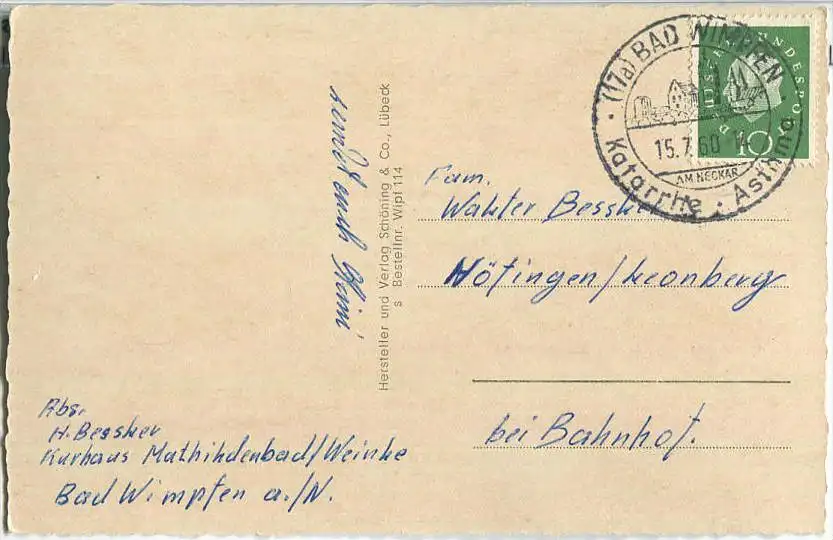 (17a) BAD WIMPFEN
15.7.60
AM NECKAR
Katarrhe · Asthma
DEUTSCHE BUNDESPOST
10
Hersteller und Verlag Schöning & Co., Lübeck
s Bestellnr. Wipf 114
sendet auch Heini
Fam.
Walter Bessker
Höfingen/Leonberg
bei Bahnhof.
Abs.
H. Bessker
Kurhaus Mathildenbad/Weinke
Bad Wimpfen a./N.